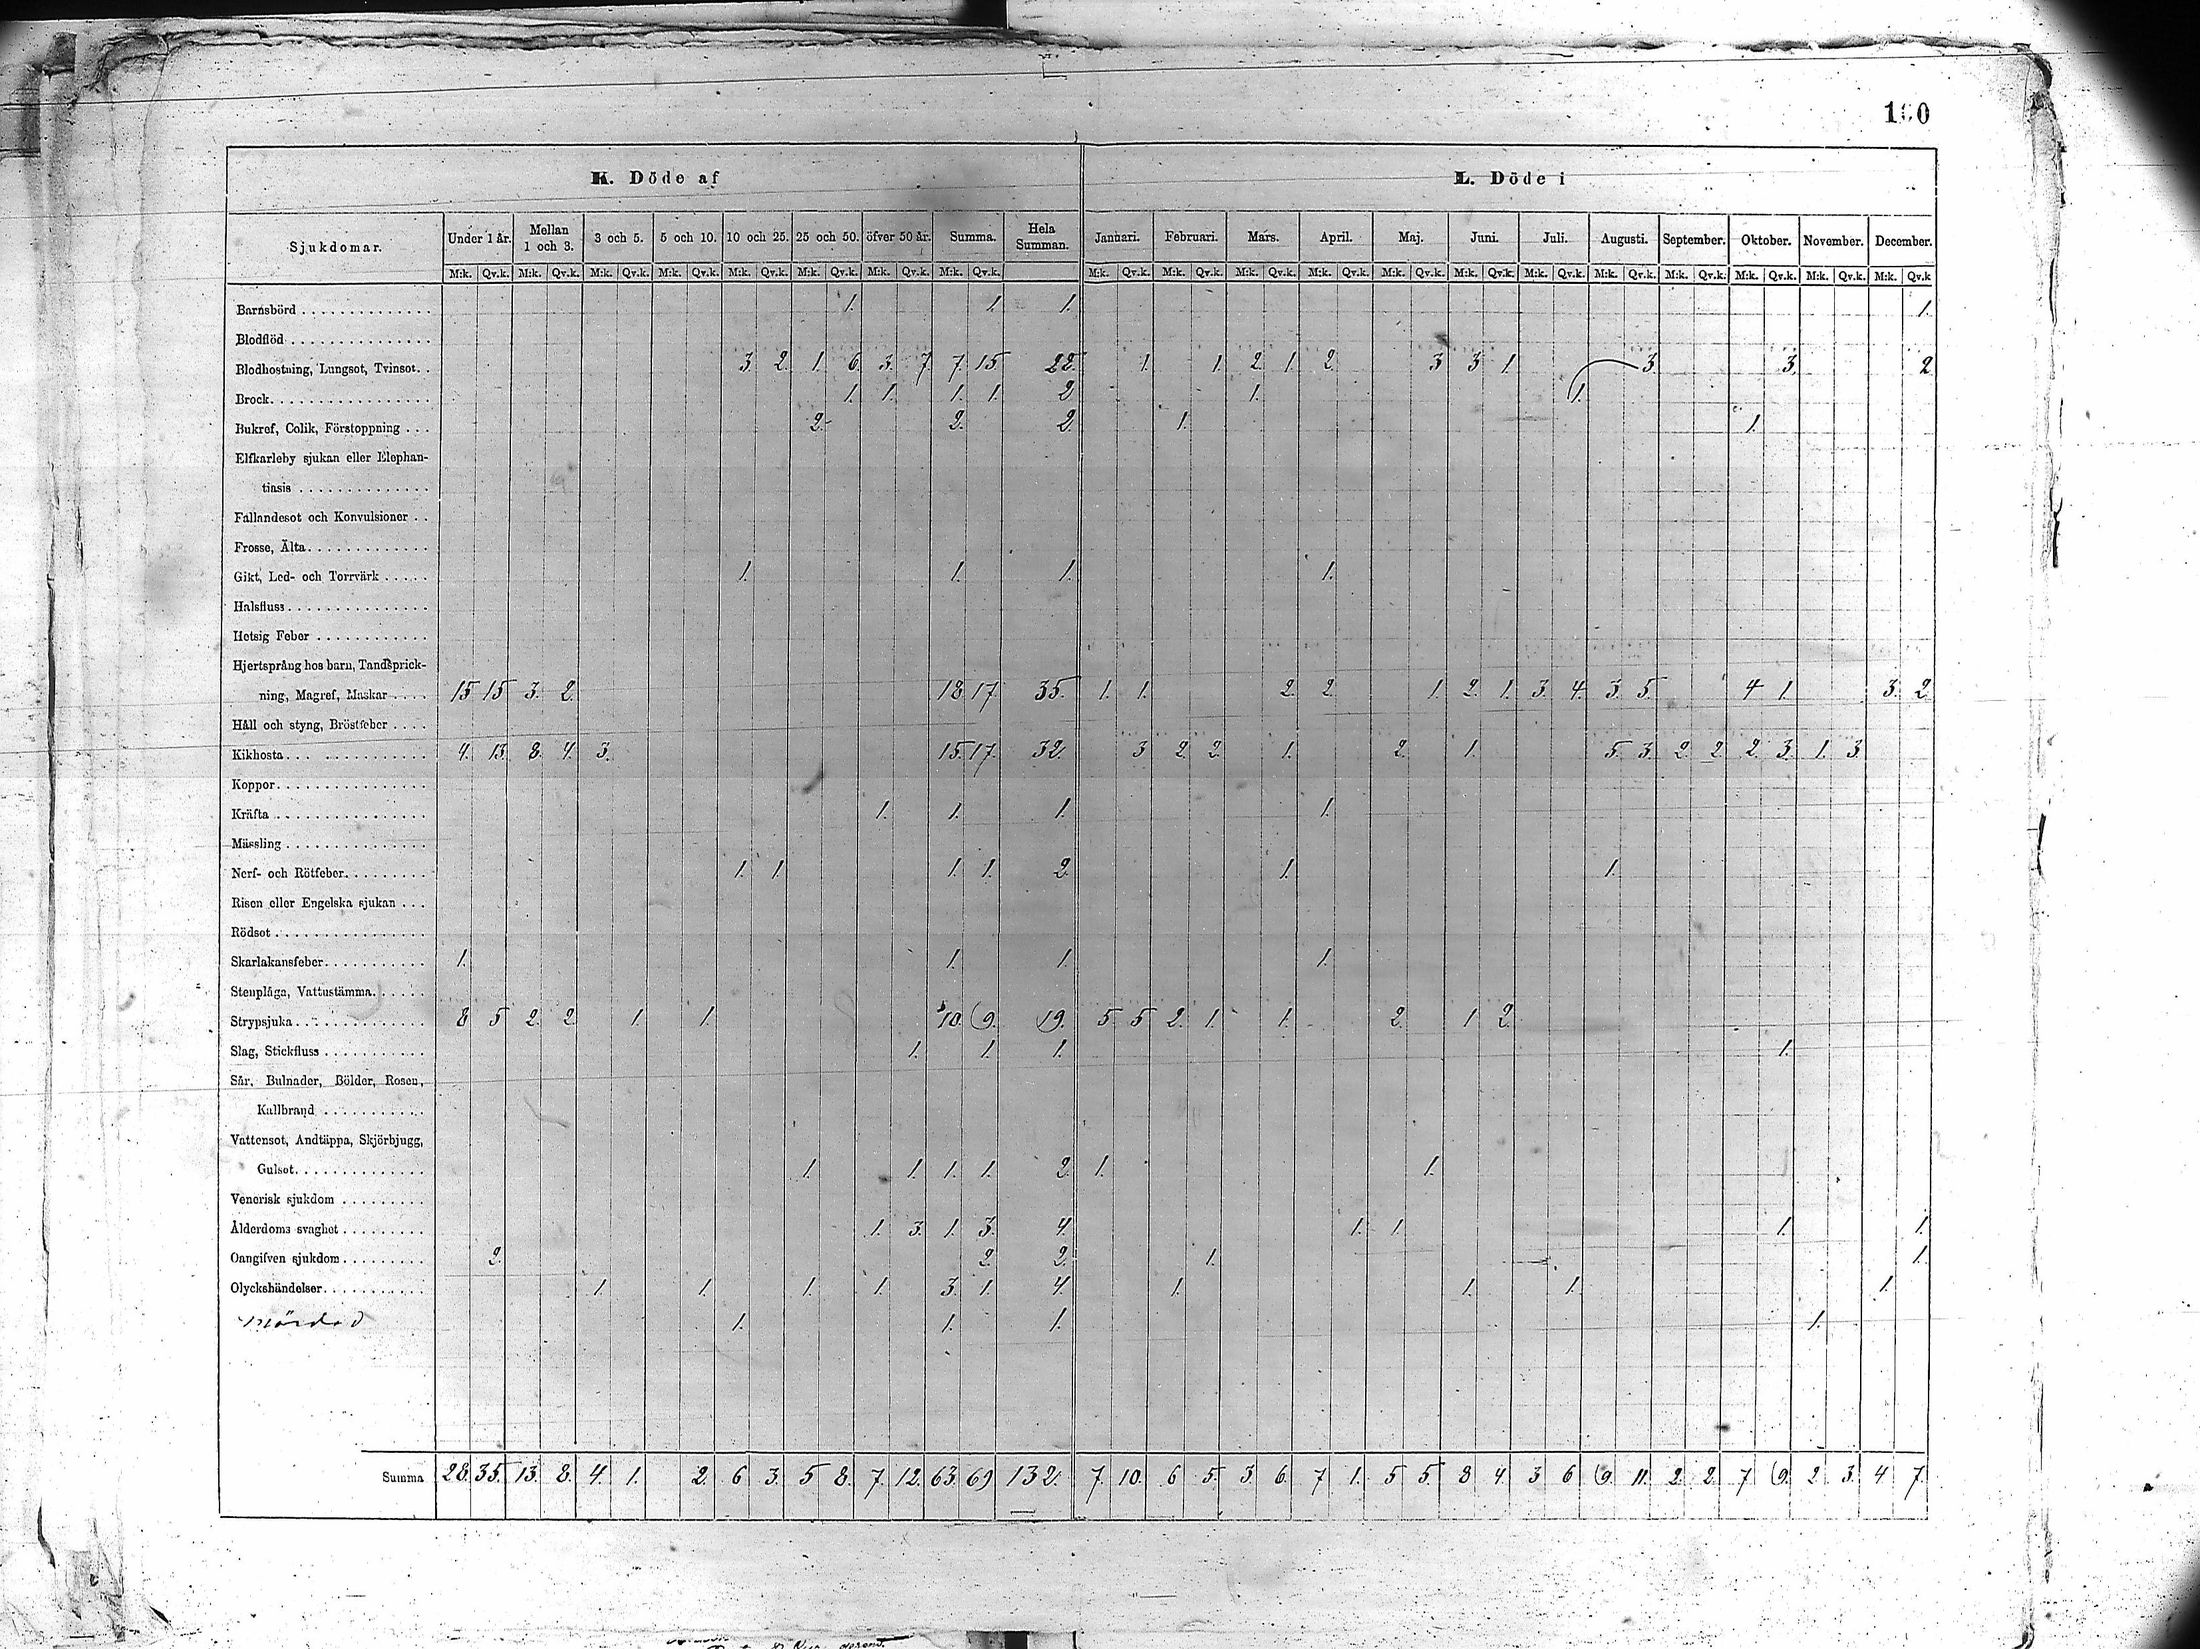 100
K. Döde af L. Döde i
Sjukdomar. Under 1 år. Mellan 1 och 3. 3 och 5. 5 och 10. 10 och 25. 25 och 50. öfver 50 år. Summa. Hela Summan. Januari. Februari. Mars. April. Maj. Juni. Juli. Augusti. September. Oktober. November. December.
M:k. Qv.k. M:k. Qv.k. M:k. Qv.k. M:k. Qv.k. M:k. Qv.k. M:k. Qv.k. M:k. Qv.k. M:k. Qv.k. M:k. Qv.k. M:k. Qv.k. M:k. Qv.k. M:k. Qv.k. M:k. Qv.k. M:k. Qv.k. M:k. Qv.k. M:k. Qv.k. M:k. Qv.k. M:k. Qv.k. M:k. Qv.k. M:k. Qv.k
Barnsbörd 1. 1. 1. 1.
Blodflöd
Blodhostning, Lungsot, Tvinsot. 3. 2. 1. 6. 3. 7. 7. 15. 22. 1. 1. 2. 1. 2. 3 3 1 3. 3. 2
Brock 1. 1. 1. 1. 2 1. 1.
Bukref, Colik, Förstoppning 2. 2. 2. 1. 1.
Elfkarleby sjukan eller Elephan-
tiasis
Fallandesot och Konvulsioner
Frosse, Älta
Gikt, Led- och Torrvärk 1. 1. 1. 1.
Halsfluss
Hetsig Feber
Hjertsprång hos barn, Tandsprick-
ning, Magref, Maskar 15 15 3. 2. 18 17. 35. 1. 1. 2. 2. 1. 2. 1. 3. 4. 3. 5. 4 1. 3. 2.
Håll och styng, Bröstfeber
Kikhosta 4. 13. 8. 4. 3. 15. 17. 32. 3 2. 2. 1. 2. 1. 5. 3. 2. 2 2. 3. 1. 3.
Koppor
Kräfta 1. 1. 1. 1.
Mässling
Nerf- och Rötfeber 1. 1. 1. 1. 2. 1. 1.
Risen eller Engelska sjukan
Rödsot
Skarlakansfeber 1. 1. 1. 1.
Stenplåga, Vattustämma
Strypsjuka 8 5 2. 2. 1. 1. 10. 9. 19. 5 5 2. 1. 1. 2. 1 2.
Slag, Stickfluss 1. 1. 1. 1.
Sår, Bulnader, Bölder, Rosen,
Kallbrand
Vattensot, Andtäppa, Skjörbjugg,
Gulsot 1. 1. 1. 1. 2. 1. 1.
Venerisk sjukdom
Ålderdoms svaghet 1. 3. 1. 3. 4. 1. 1. 1. 1.
Oangifven sjukdom 2. 2. 2. 1. 1.
Olyckshändelser 1. 1. 1. 1. 3. 1. 4. 1. 1. 1. 1.
Mördad 1. 1. 1. 1.
Summa 28. 35. 13. 8. 4. 1. 2. 6 3. 5 8. 7. 12. 63. 69 132. 7. 10. 6 5. 3 6. 7 1. 5 5 8 4 3 6 9. 11. 2 2. 7 9. 2 3. 4 7.